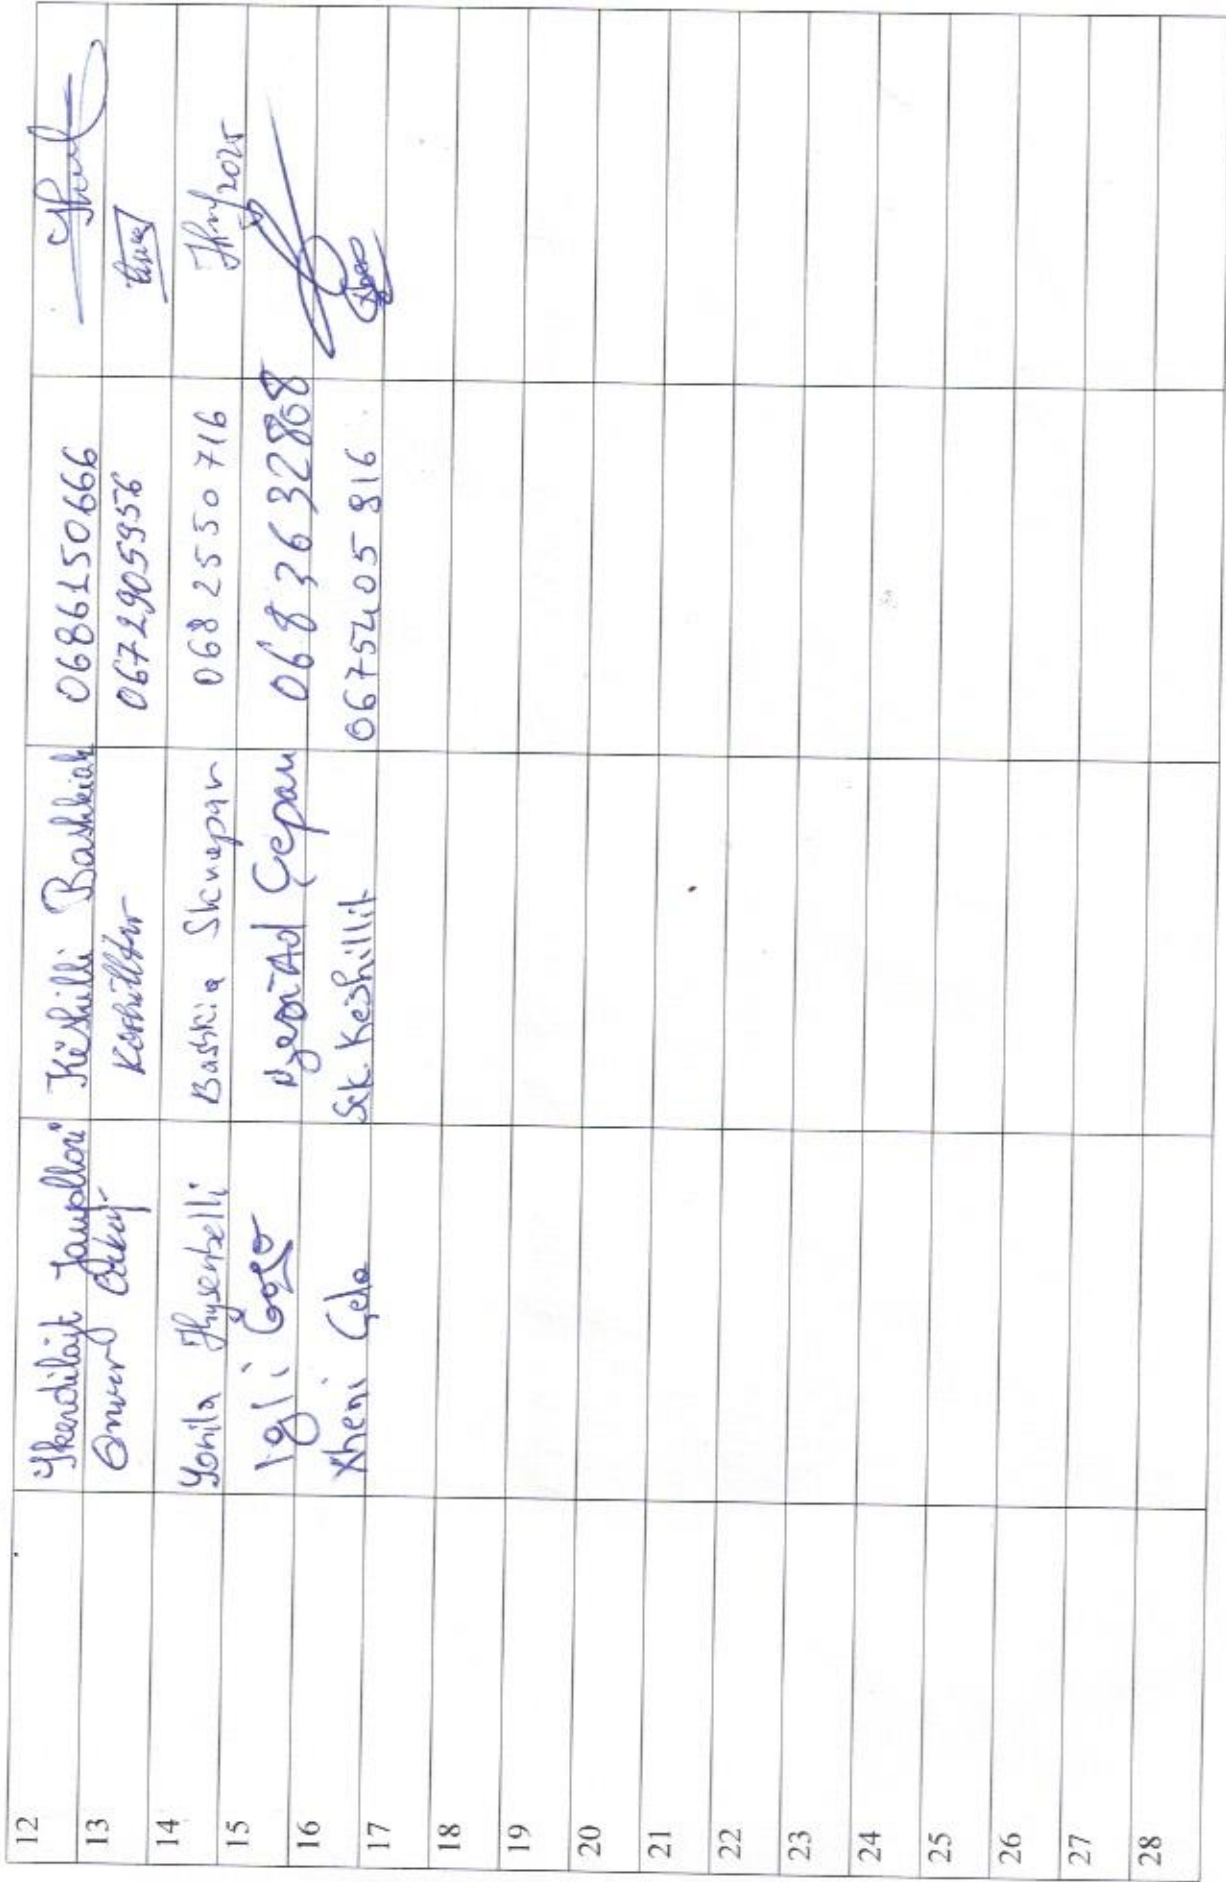 12 Skendilajt Jaupllari Këshilli Bashkiak 0686150666
13 Enver Këshilltar 0672905956
14 Yonila Hysenbelli Bashkia Skrapar 068 2550 716
15 Igli Goxo Njësia Ad Çepan 0683632808
16 Xheni Çela Sek. Këshillit 0675405816
17
18
19
20
21
22
23
24
25
26
27
28